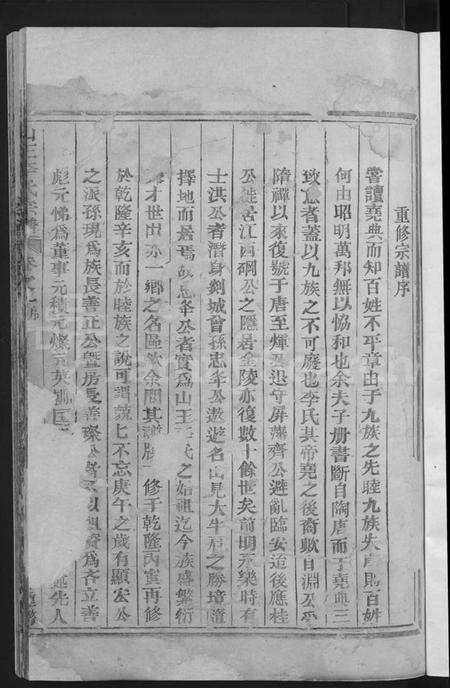 重修宗譜序
嘗讀堯典而知百姓不平章由于九族之先睦九族失序則百姓
何由昭明萬邦無以協和也余夫子册書斷自陶唐而于堯典三
致意者蓋以九族之不可廢也李氏其帝堯之後裔歟自淵公受
隋禪以來復號于唐至煇公退守屏藩齊公避亂臨安迨後應桂
公徙居江西硐公之隱居金陵亦復數十餘世矣前明永樂時有
士洪公者潛身剡城曾孫志年公遨遊名山見大牛眉之勝境遂
擇地而居焉故志年公者實為山王氏之始祖迄今族盛繁衍
才世出亦一鄉之名區欤余閱其譜牒修于乾隆丙寅再修
於乾隆辛亥而於睦族之說可謂諄七不忘庚午之歲有顯宏公
之派孫現為族長善正公曁房長善為各立善
彪元悌為董事元積元燦元英
先人